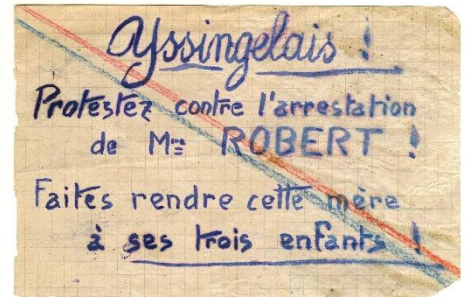 Yssingelais !
Protestez contre l'arrestation
de Mme ROBERT !
Faites rendre cette mère
à ses trois enfants !